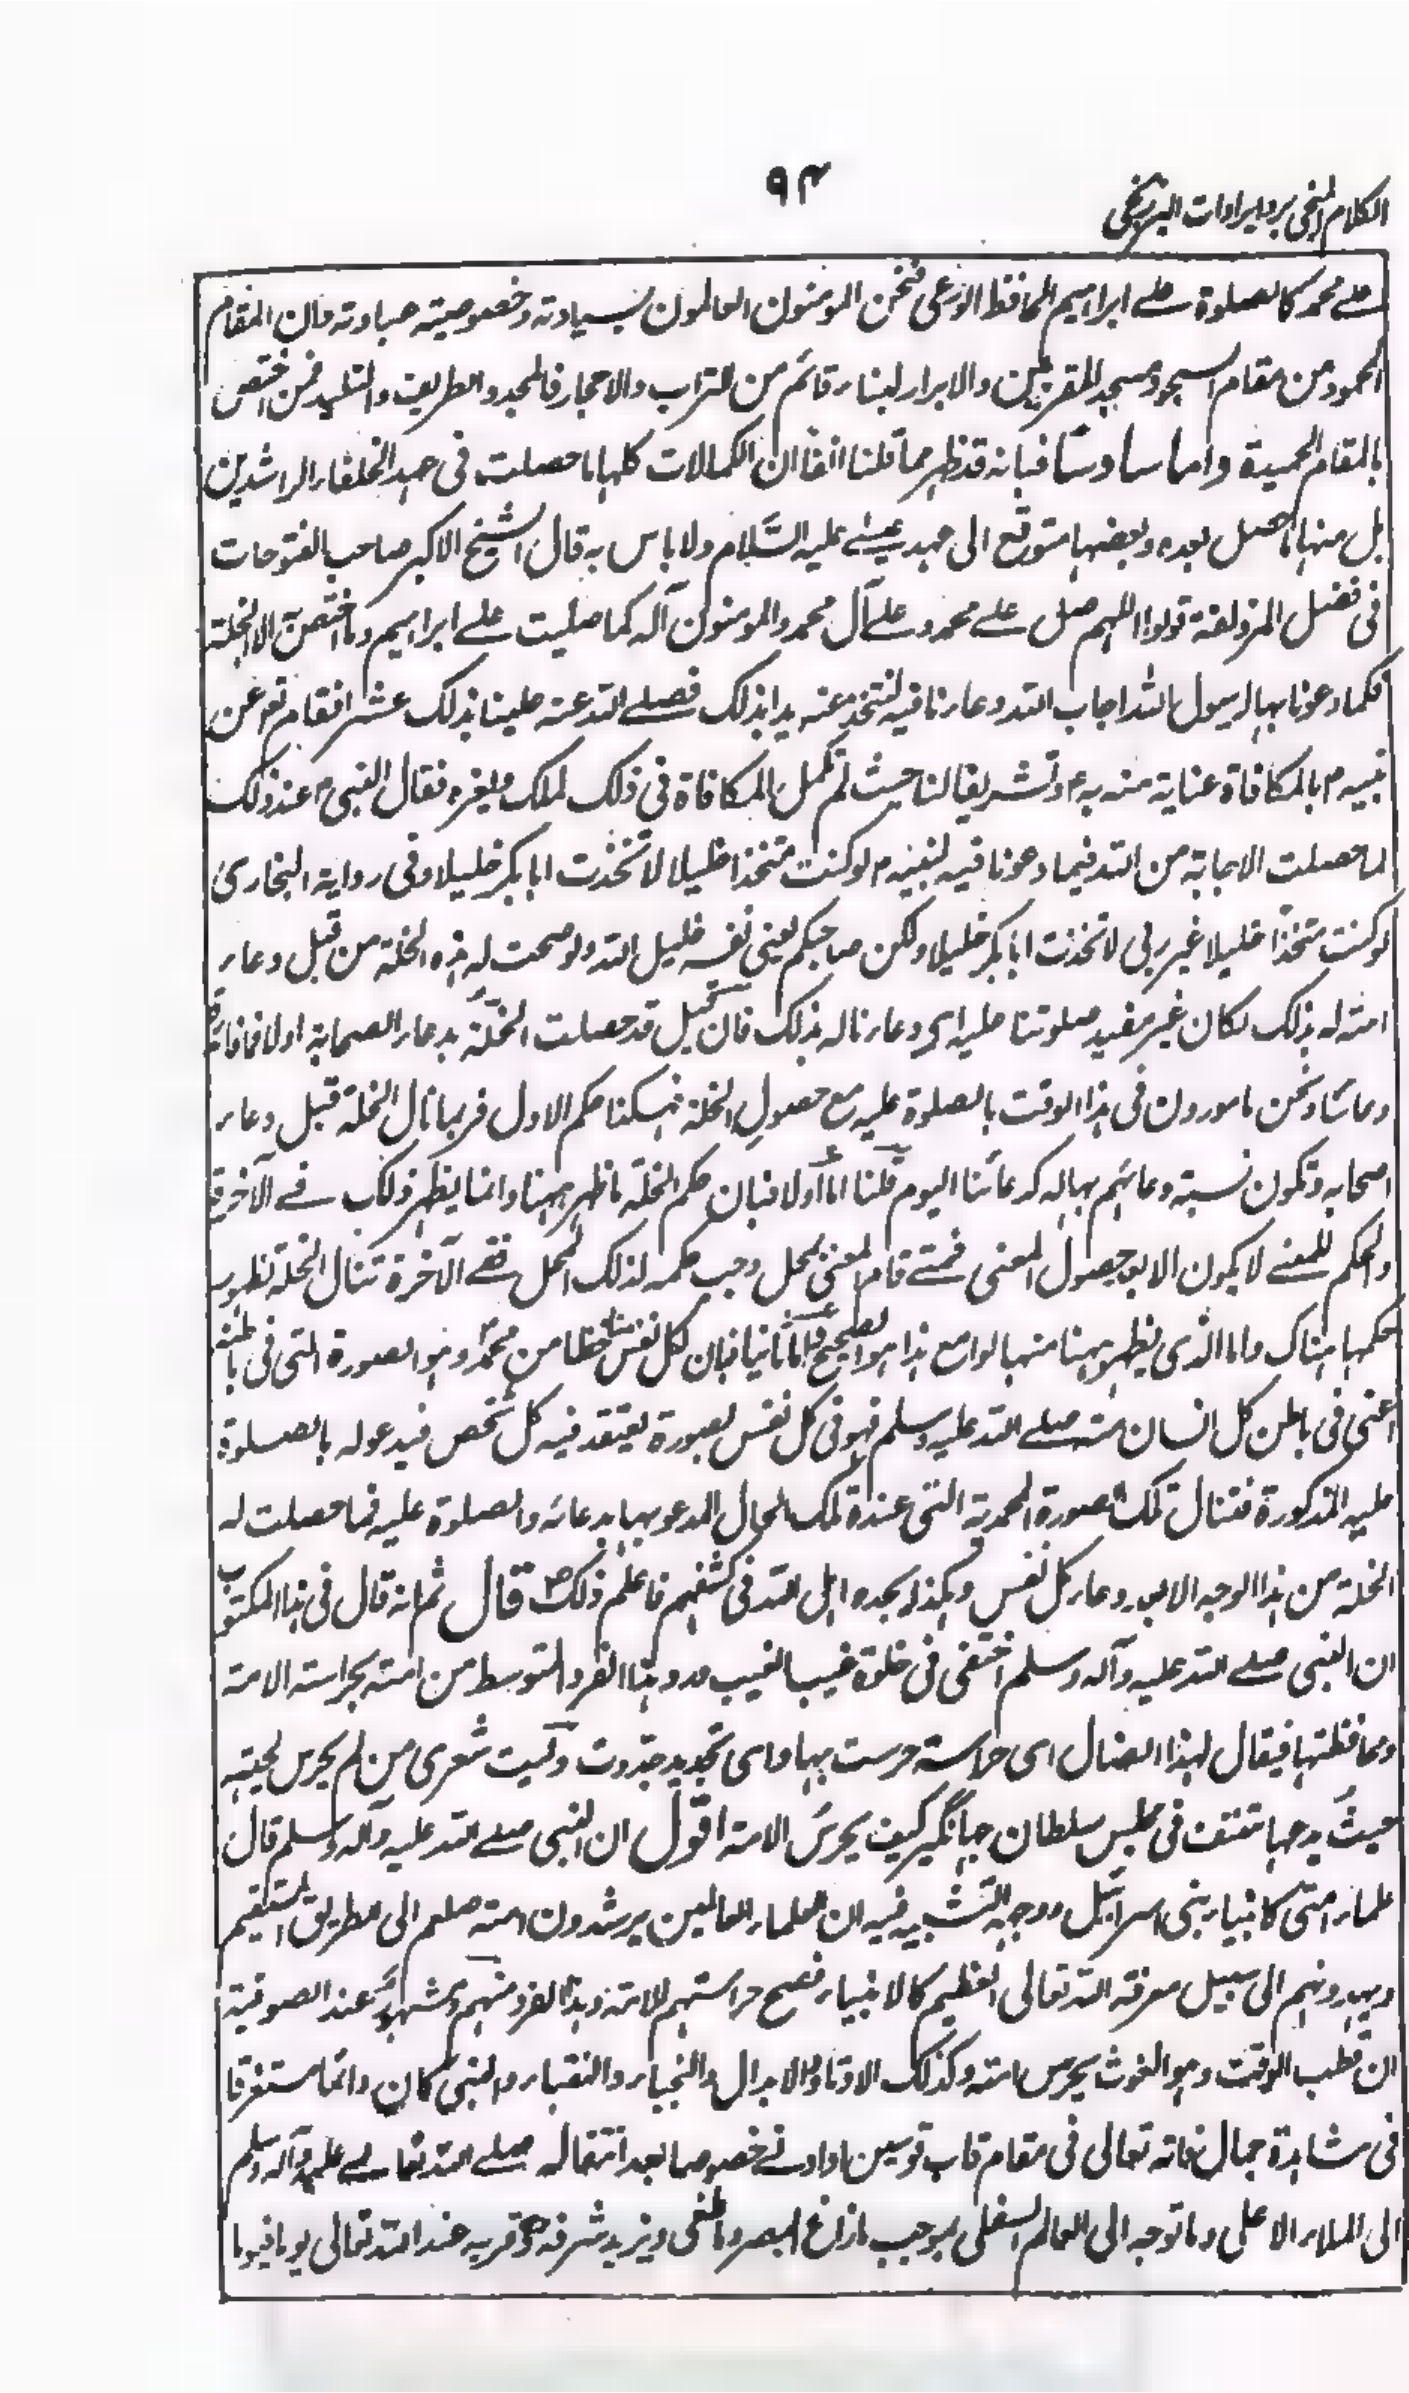 الكلام المنجي برد ايرادات البرزنجي
٩٤
على محمد كالصلوة على ابراهيم المحافظ الارعى فنحن المومنون العالمون بسيادته وخصوصيته عبادته فان المقام
المحمود من مقام السجود مسجد للمقربين والابرار لبناء قائم من التراب والاحجار فالمجد والطريف والتليد فمن اختص
بالمقام الحميدة واما سادسا فبانه قد ظهر مما قلنا انفا ان الكمالات كلها ما حصلت فى عهد الخلفاء الراشدين
بل منها ما حصل بعده وبعضها متوقع الى عهد عيسى عليه السّلام ولا باس به قال الشيخ الاكبر صاحب الفتوحات
فى فضل المزدلفة قولوا اللهم صل على محمد وعلى آل محمد والمومنون آله كما صليت على ابراهيم وما اختص الا الخلة
فكما دعونا بها لرسول الله اجاب الله دعاءنا فيه لنتخذ عنده يدا بذلك فصلى الله عنه علينا بذلك عشرا فقام تع عن
نبيه م بالمكافاة عناية منه به م وتشريفا لنا حيث لم تكمل المكافاة فى ذلك لملك وبغيره فقال النبى م عند ذلك
لما حصلت الاجابة من الله فيما دعونا فيه لنبيه م لو كنت متخذا خليلا لاتخذت ابا بكر خليلا وفى رواية البخارى
لو كنت متخذا خليلا غير ربى لاتخذت ابا بكر خليلا ولكن صاحبكم يعنى نفسه خليل الله ولو صحت له هذه الخلة من قبل دعاء
امته له بذلك لكان غير مفيد صلوتنا عليه اى دعاءنا له بذلك فان قيل قد حصلت الخلّة بدعاء الصحابة اولا فما فائدة
دعائنا ونحن مامورون فى هذا الوقت بالصلوة عليه مع حصول الخلة فهكنا حكم الاول فربما نال الخلة قبل دعاء
اصحابه وتكون نسبة دعائهم بها له كدعائنا اليوم قلنا اما اولا فبان حكم الخلة ما ظهر ههنا وانما يظهر ذلك فى الآخرة
والحكم للمعنى لا يكون الا بعد حصول المعنى فمتى قام المعنى بمحل وجب حكمه لذلك المحل ففى الآخرة تنال الخلة لظهور
حكمها هناك واما الذى يظهر ههنا منها لوامع هذا هو الصحيح واما ثانيا فبان لكل نفس منا حظا من محمد وهو الصورة التى فى باطنه
اعنى فى باطن كل انسان منه صلى الله عليه وسلم فهو فى كل نفس بصورة يعتقد فيه كل شخص فيدعو له بالصلوة
عليه المذكورة فتنال تلك الصورة المحمدية التى عنده تلك الحال المدعو بها بدعائه والصلوة عليه فما حصلت له
الخلة من هذا الوجه الا بعد دعاء كل نفس وهكذا يجده اهل الله فى كشفهم فاعلم ذلك قال ثم انه قال فى هذا المكتوب
ان النبى صلى الله عليه وآله وسلم اختفى فى خلوة غيب الغيب وهذا الفرد المتوسط من امته بحراسة الامة
ومحافظتها فيقال لهذا الضال اى حراسة حرست بها واى تجديد جددت وليت شعرى من لم يحرس لحيته
حيث يدعها تنتف فى مجلس سلطان جهانگير كيف يحرس الامة اقول ان النبى صلى الله عليه وآله وسلم قال
علماء امتى كانبياء بنى اسرائيل ووجه التشبيه فيه ان العلماء العالمين يرشدون امته صلعم الى الطريق المستقيم
ويهدونهم الى سبيل معرفة الله تعالى العظيم كالانبياء فصح حراستهم للامة وهذا الفرد منهم ومشهور عند الصوفية
ان قطب الوقت وهو الغوث يحرس امته وكذلك الاوتاد والابدال والنجباء والنقباء والنبى كان دائما مستغرقا
فى مشاهدة جمال ذاته تعالى فى مقام قاب قوسين او ادنى خصوصا بعد انتقاله صلى الله تعالى عليه وآله وسلم
الى الملاء الاعلى وما توجه الى العالم السفلى بموجب ما زاغ البصر وما طغى ويزيد شرفه وقربه عند الله تعالى يوما فيوما